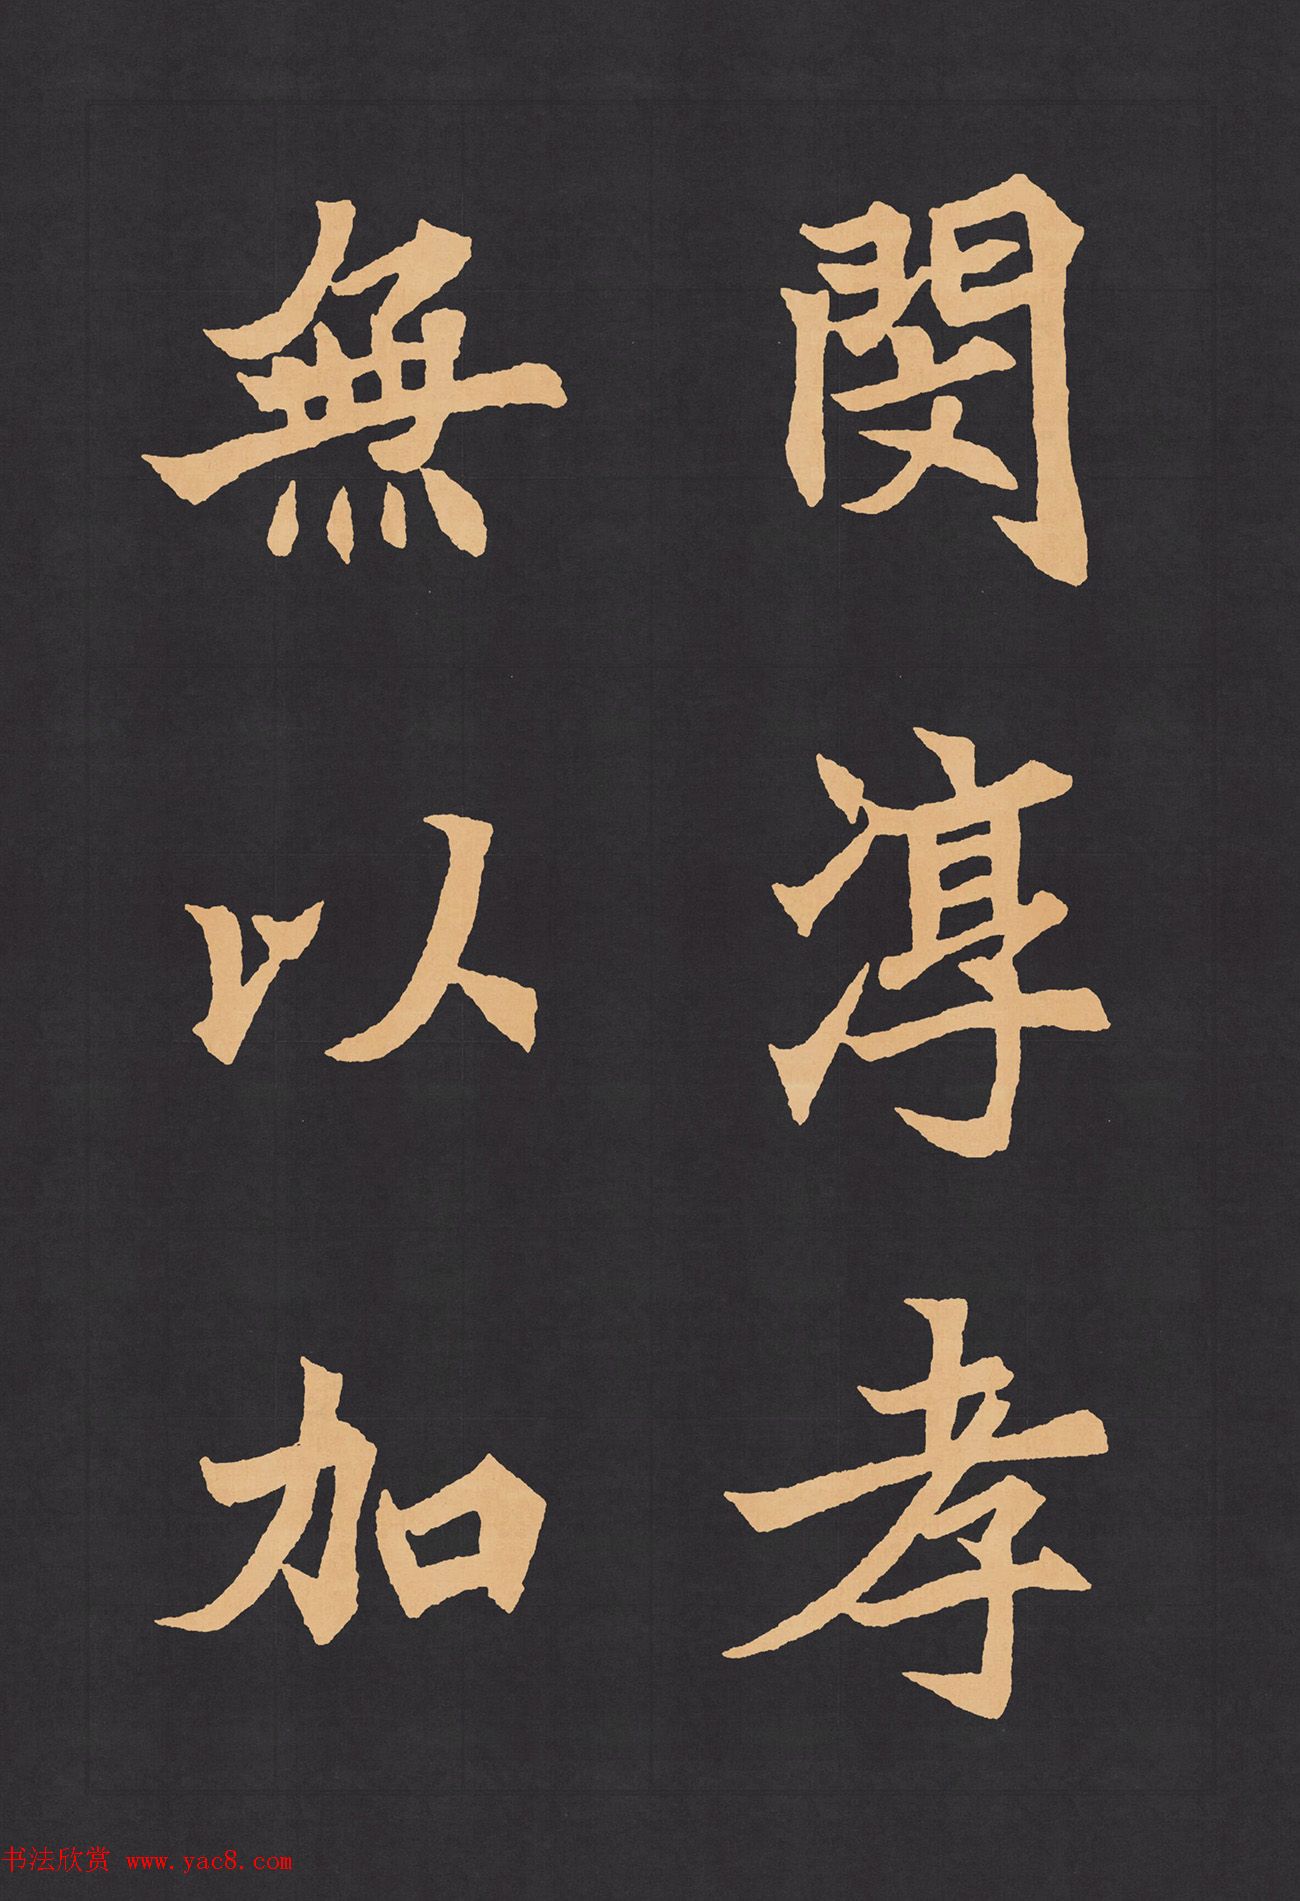 閔淳孝
無以加
书法欣赏 www.yac8.com